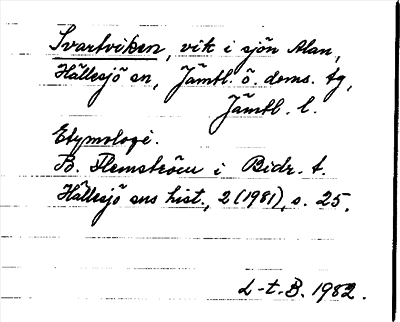 Svartviken, vik i sjön Alan,
Hällesjö sn, Jämtl. ö. doms. tg,
Jämtl. l.
Etymologi.
B. Flemström i Bidr. t.
Hällesjö sns hist., 2 (1981), s. 25.
L-t-B. 1982.